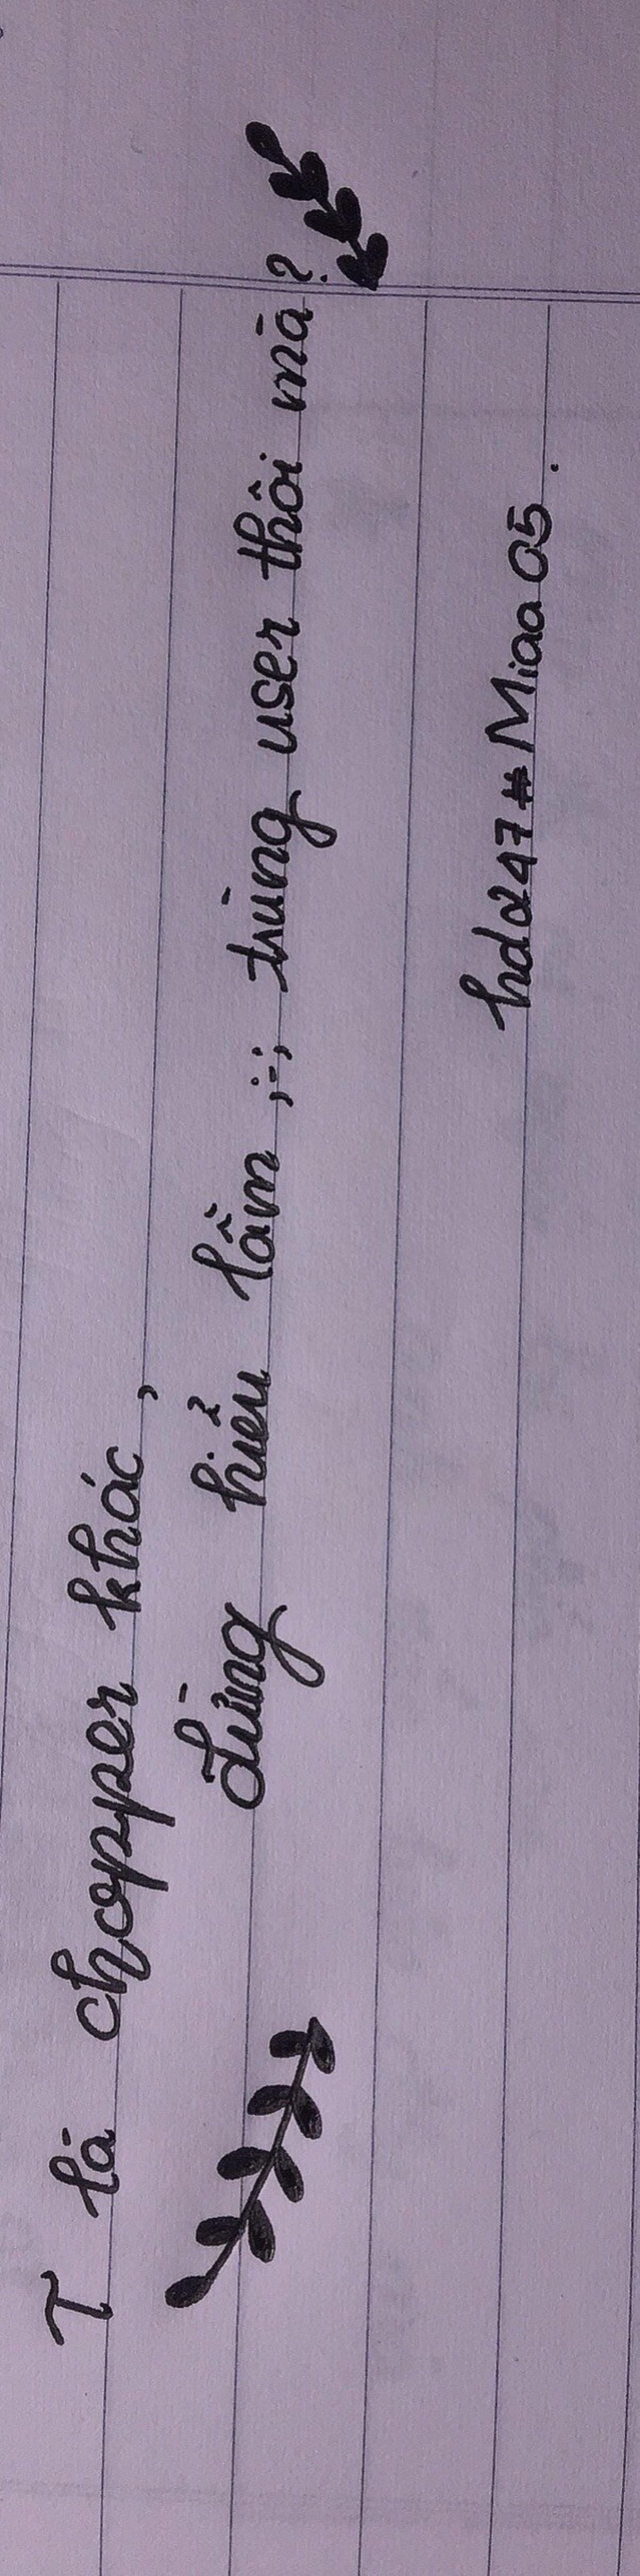 T là chopper khác,
đừng hiểu lầm ;-; trùng user thôi mà?
hdd247#Miaa05.